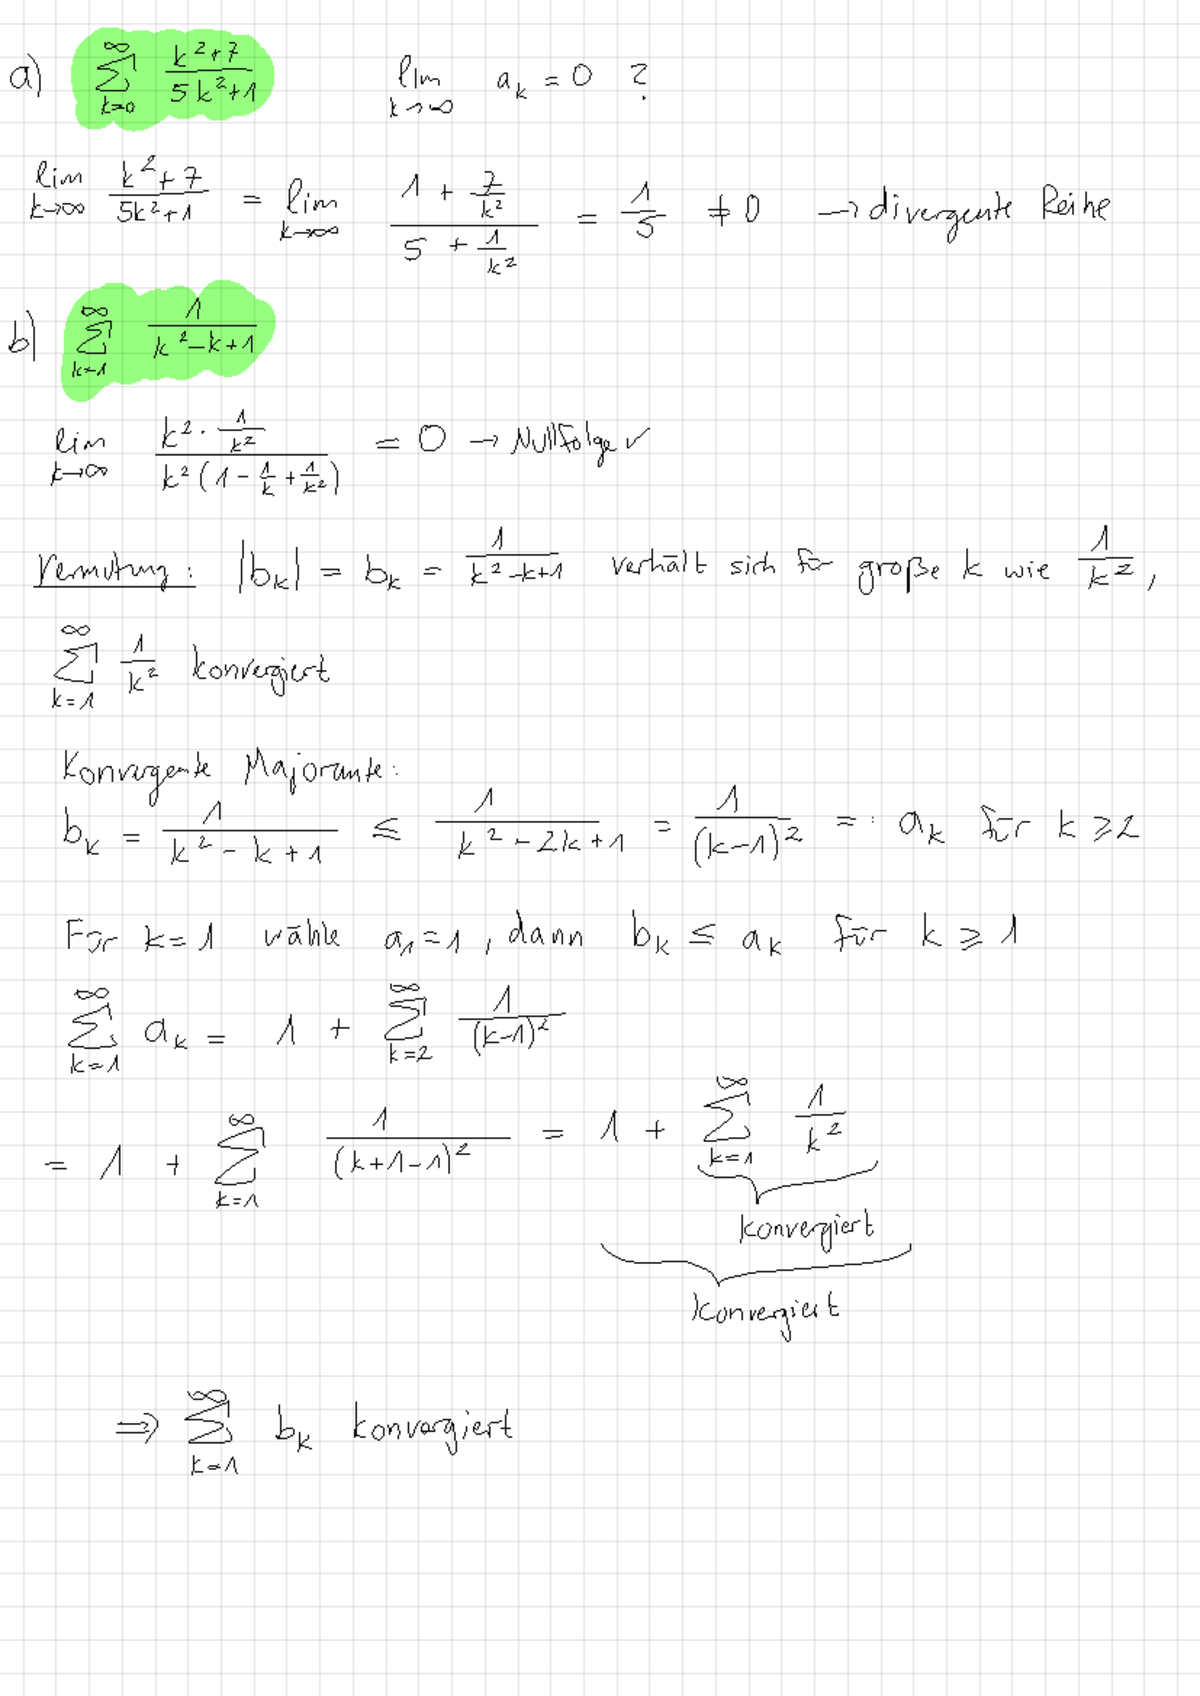 a) ∑_{k=0}^{∞} (k²+7)/(5k²+1)   lim_{k→∞} a_k = 0 ?
lim_{k→∞} (k²+7)/(5k²+1) = lim_{k→∞} (1 + 7/k²)/(5 + 1/k²) = 1/5 ≠ 0 → divergente Reihe
b) ∑_{k=1}^{∞} 1/(k²-k+1)
lim_{k→∞} (k² · 1/k²)/(k²(1 - 1/k + 1/k²)) = 0 → Nullfolge ✓
Vermutung: |b_k| = b_k = 1/(k²-k+1) verhält sich für große k wie 1/k²,
∑_{k=1}^{∞} 1/k² konvergiert
Konvergente Majorante:
b_k = 1/(k² - k + 1) ≤ 1/(k² - 2k + 1) = 1/(k-1)² =: a_k für k ≥ 2
Für k = 1 wähle a₁ = 1, dann b_k ≤ a_k für k ≥ 1
∑_{k=1}^{∞} a_k = 1 + ∑_{k=2}^{∞} 1/(k-1)²
= 1 + ∑_{k=1}^{∞} 1/(k+1-1)² = 1 + ∑_{k=1}^{∞} 1/k²
konvergiert
konvergiert
⇒ ∑_{k=1}^{∞} b_k konvergiert